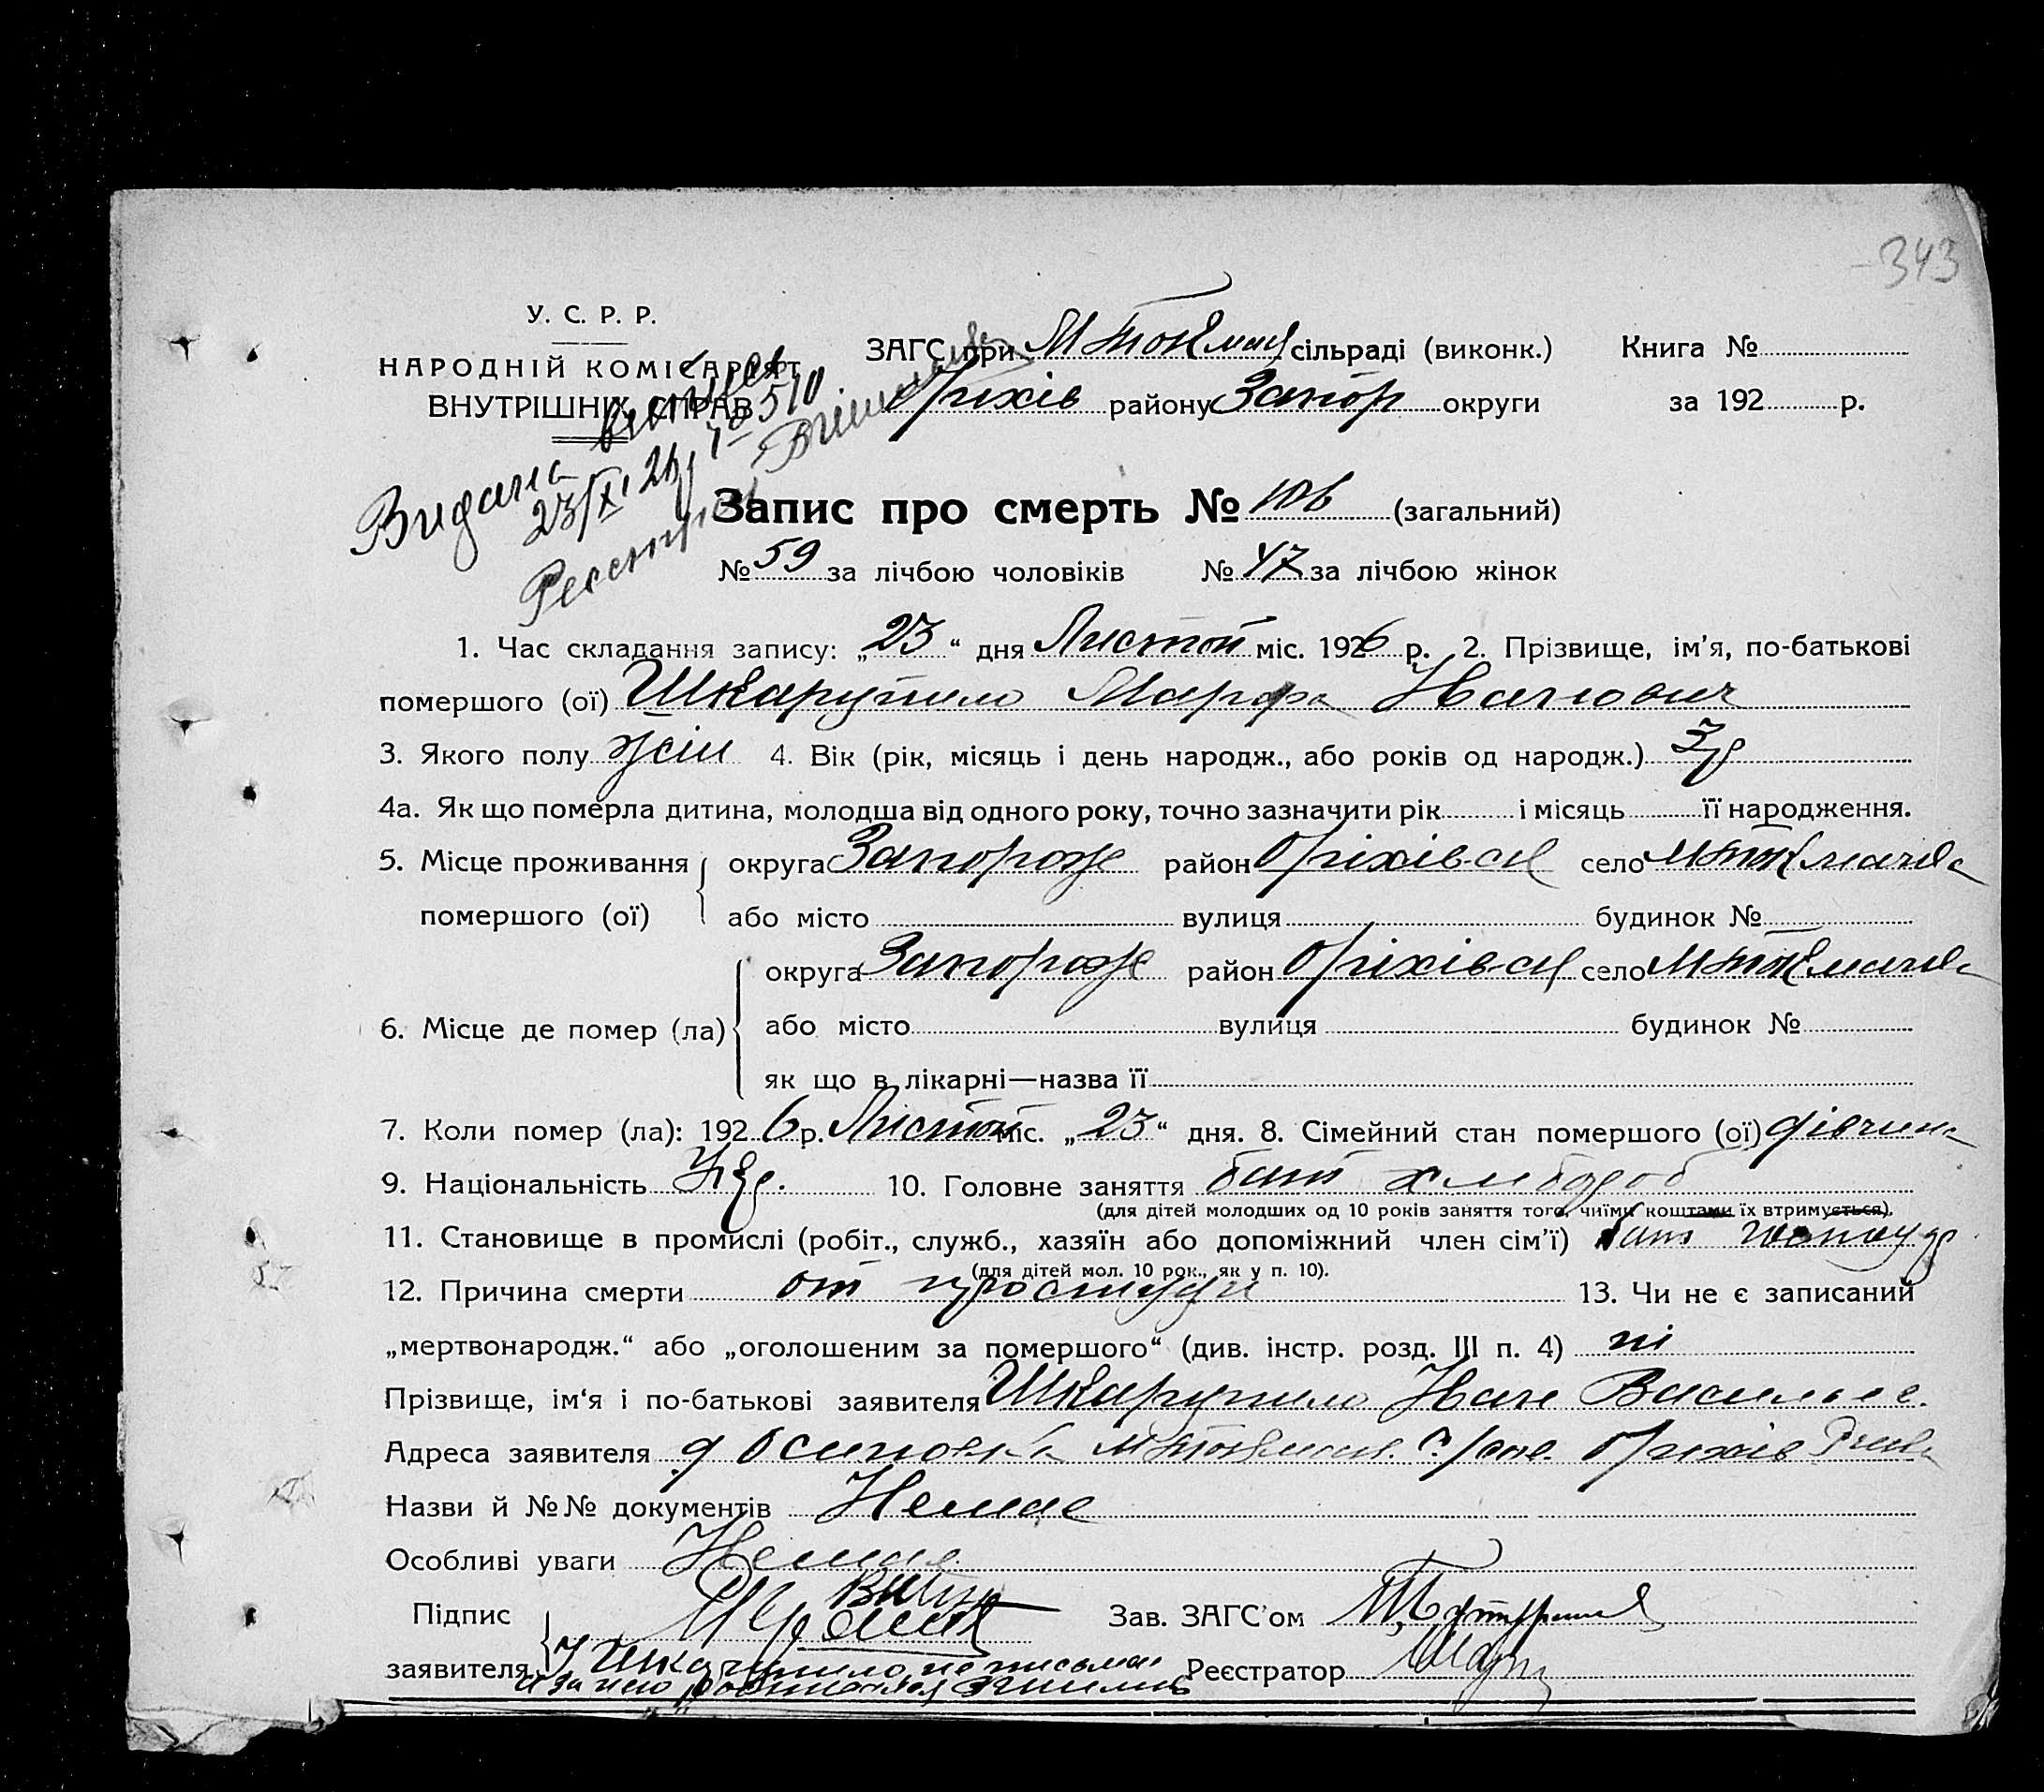 343
У. С. Р. Р.
НАРОДНІЙ КОМІСАРІЯТ
ВНУТРІШНІХ СПРАВ
ЗАГС при М Токмац сільраді (виконк.) Книга №
Оріхів району Запор округи за 192 р.
Видана виписка
23/XI 26 510
Реєстратор
Запис про смерть № 106 (загальний)
№ 59 за лічбою чоловіків № 47 за лічбою жінок
1. Час складання запису: „23“ дня Листоп міс. 1926 р. 2. Прізвище, ім'я, по-батькові
помершого (ої) Шкарупило Марфа Иванович
3. Якого полу жін 4. Вік (рік, місяць і день народж., або років од народж.) 3 р
4а. Як що померла дитина, молодша від одного року, точно зазначити рік і місяць її народження.
5. Місце проживання округа Запорож район Оріхівськ село М Токмачка
помершого (ої) або місто вулиця будинок №
округа Запорож район Оріхівськ село М Токмачка
6. Місце де помер (ла) або місто вулиця будинок №
як що в лікарні—назва її
7. Коли помер (ла): 1926 р. Листоп міс. „23“ дня. 8. Сімейний стан помершого (ої) дівчина
9. Національність Укр. 10. Головне заняття бат хлібороб
(для дітей молодших од 10 років заняття того, чиїми коштами їх втримується).
11. Становище в промислі (робіт., служб., хазяїн або допоміжний член сім'ї) бат
(для дітей мол. 10 рок., як у п. 10).
12. Причина смерти от простуди 13. Чи не є записаний
„мертвонародж.“ або „оголошеним за помершого“ (див. інстр. розд. III п. 4) ні
Прізвище, ім'я і по-батькові заявителя Шкарупило Иван Василье в.
Адреса заявителя д Осиповка М Токмац. Оріхів
Назви й №№ документів Немає
Особливі уваги Немає
Підпис Зав. ЗАГС'ом
заявителя Шкарупило не письмен Реєстратор
и за него